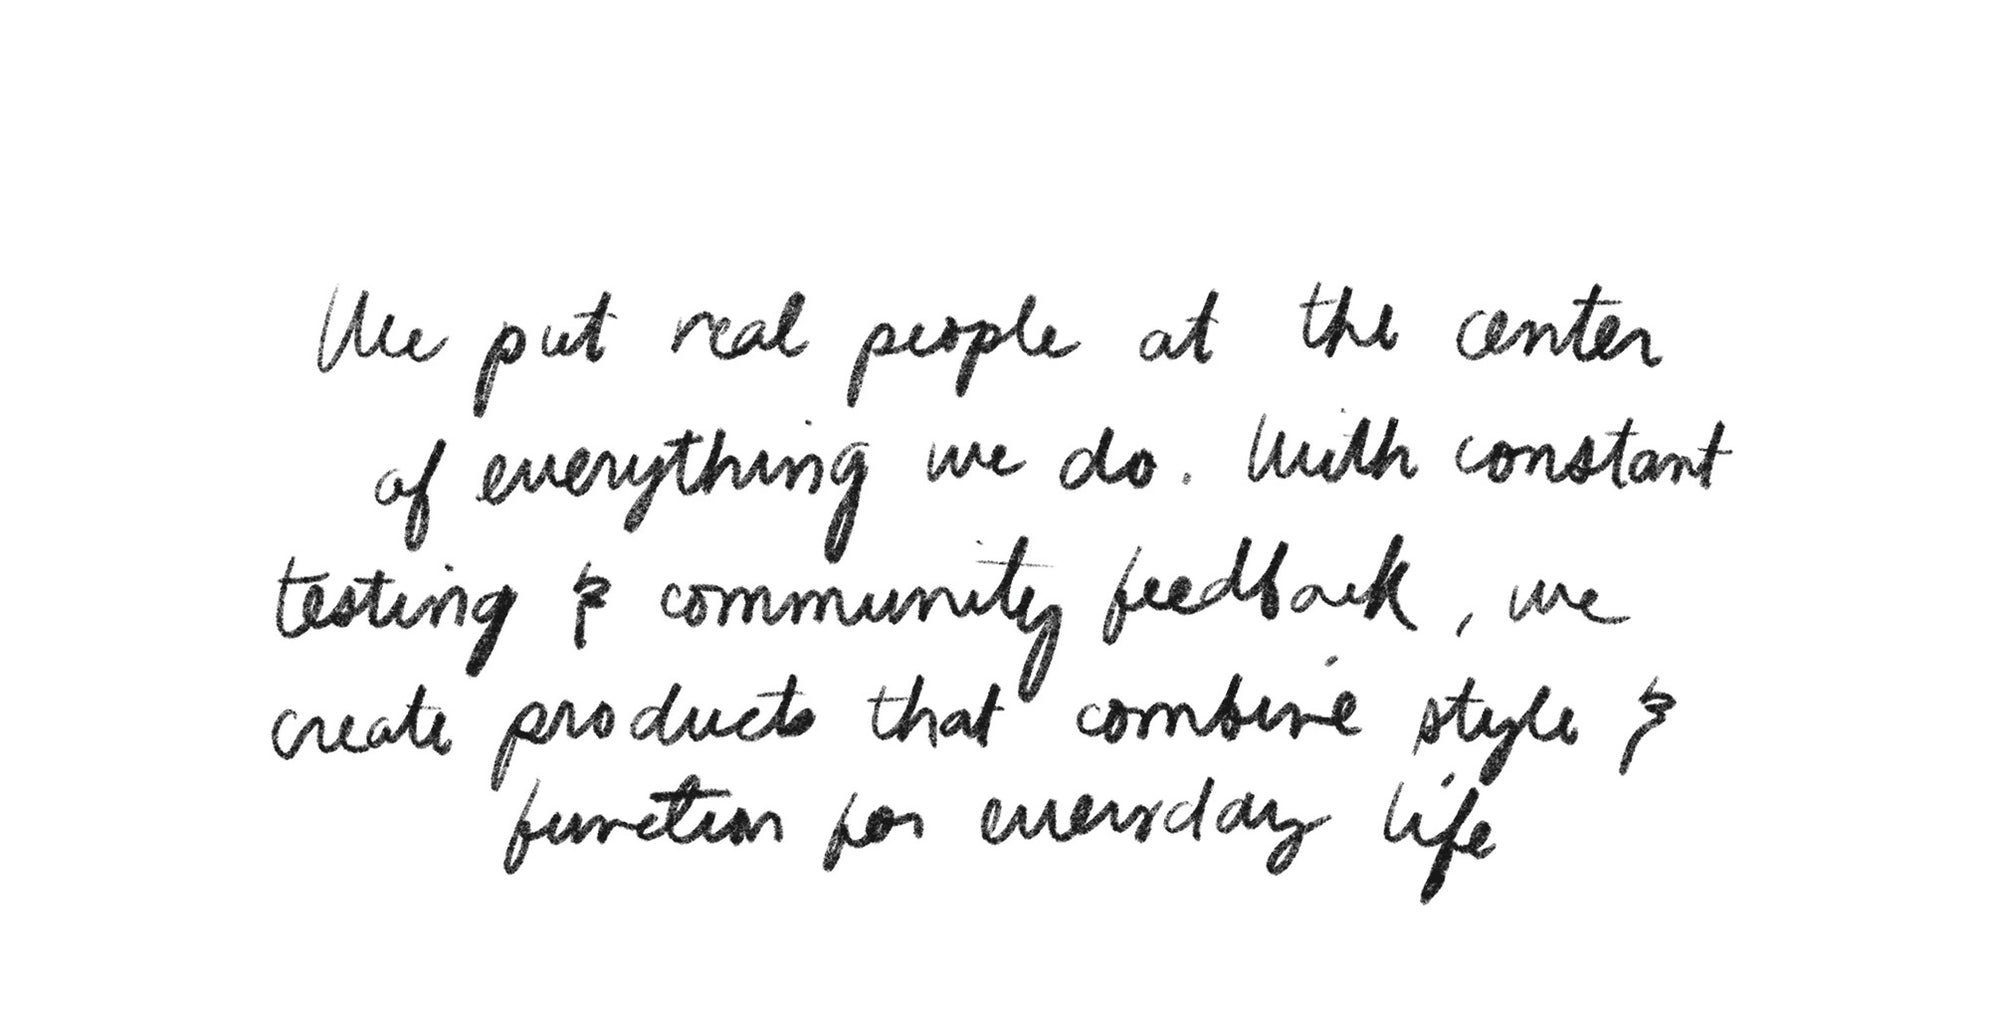 We put real people at the center
of everything we do. With constant
testing & community feedback, we
create products that combine style &
function for everyday life